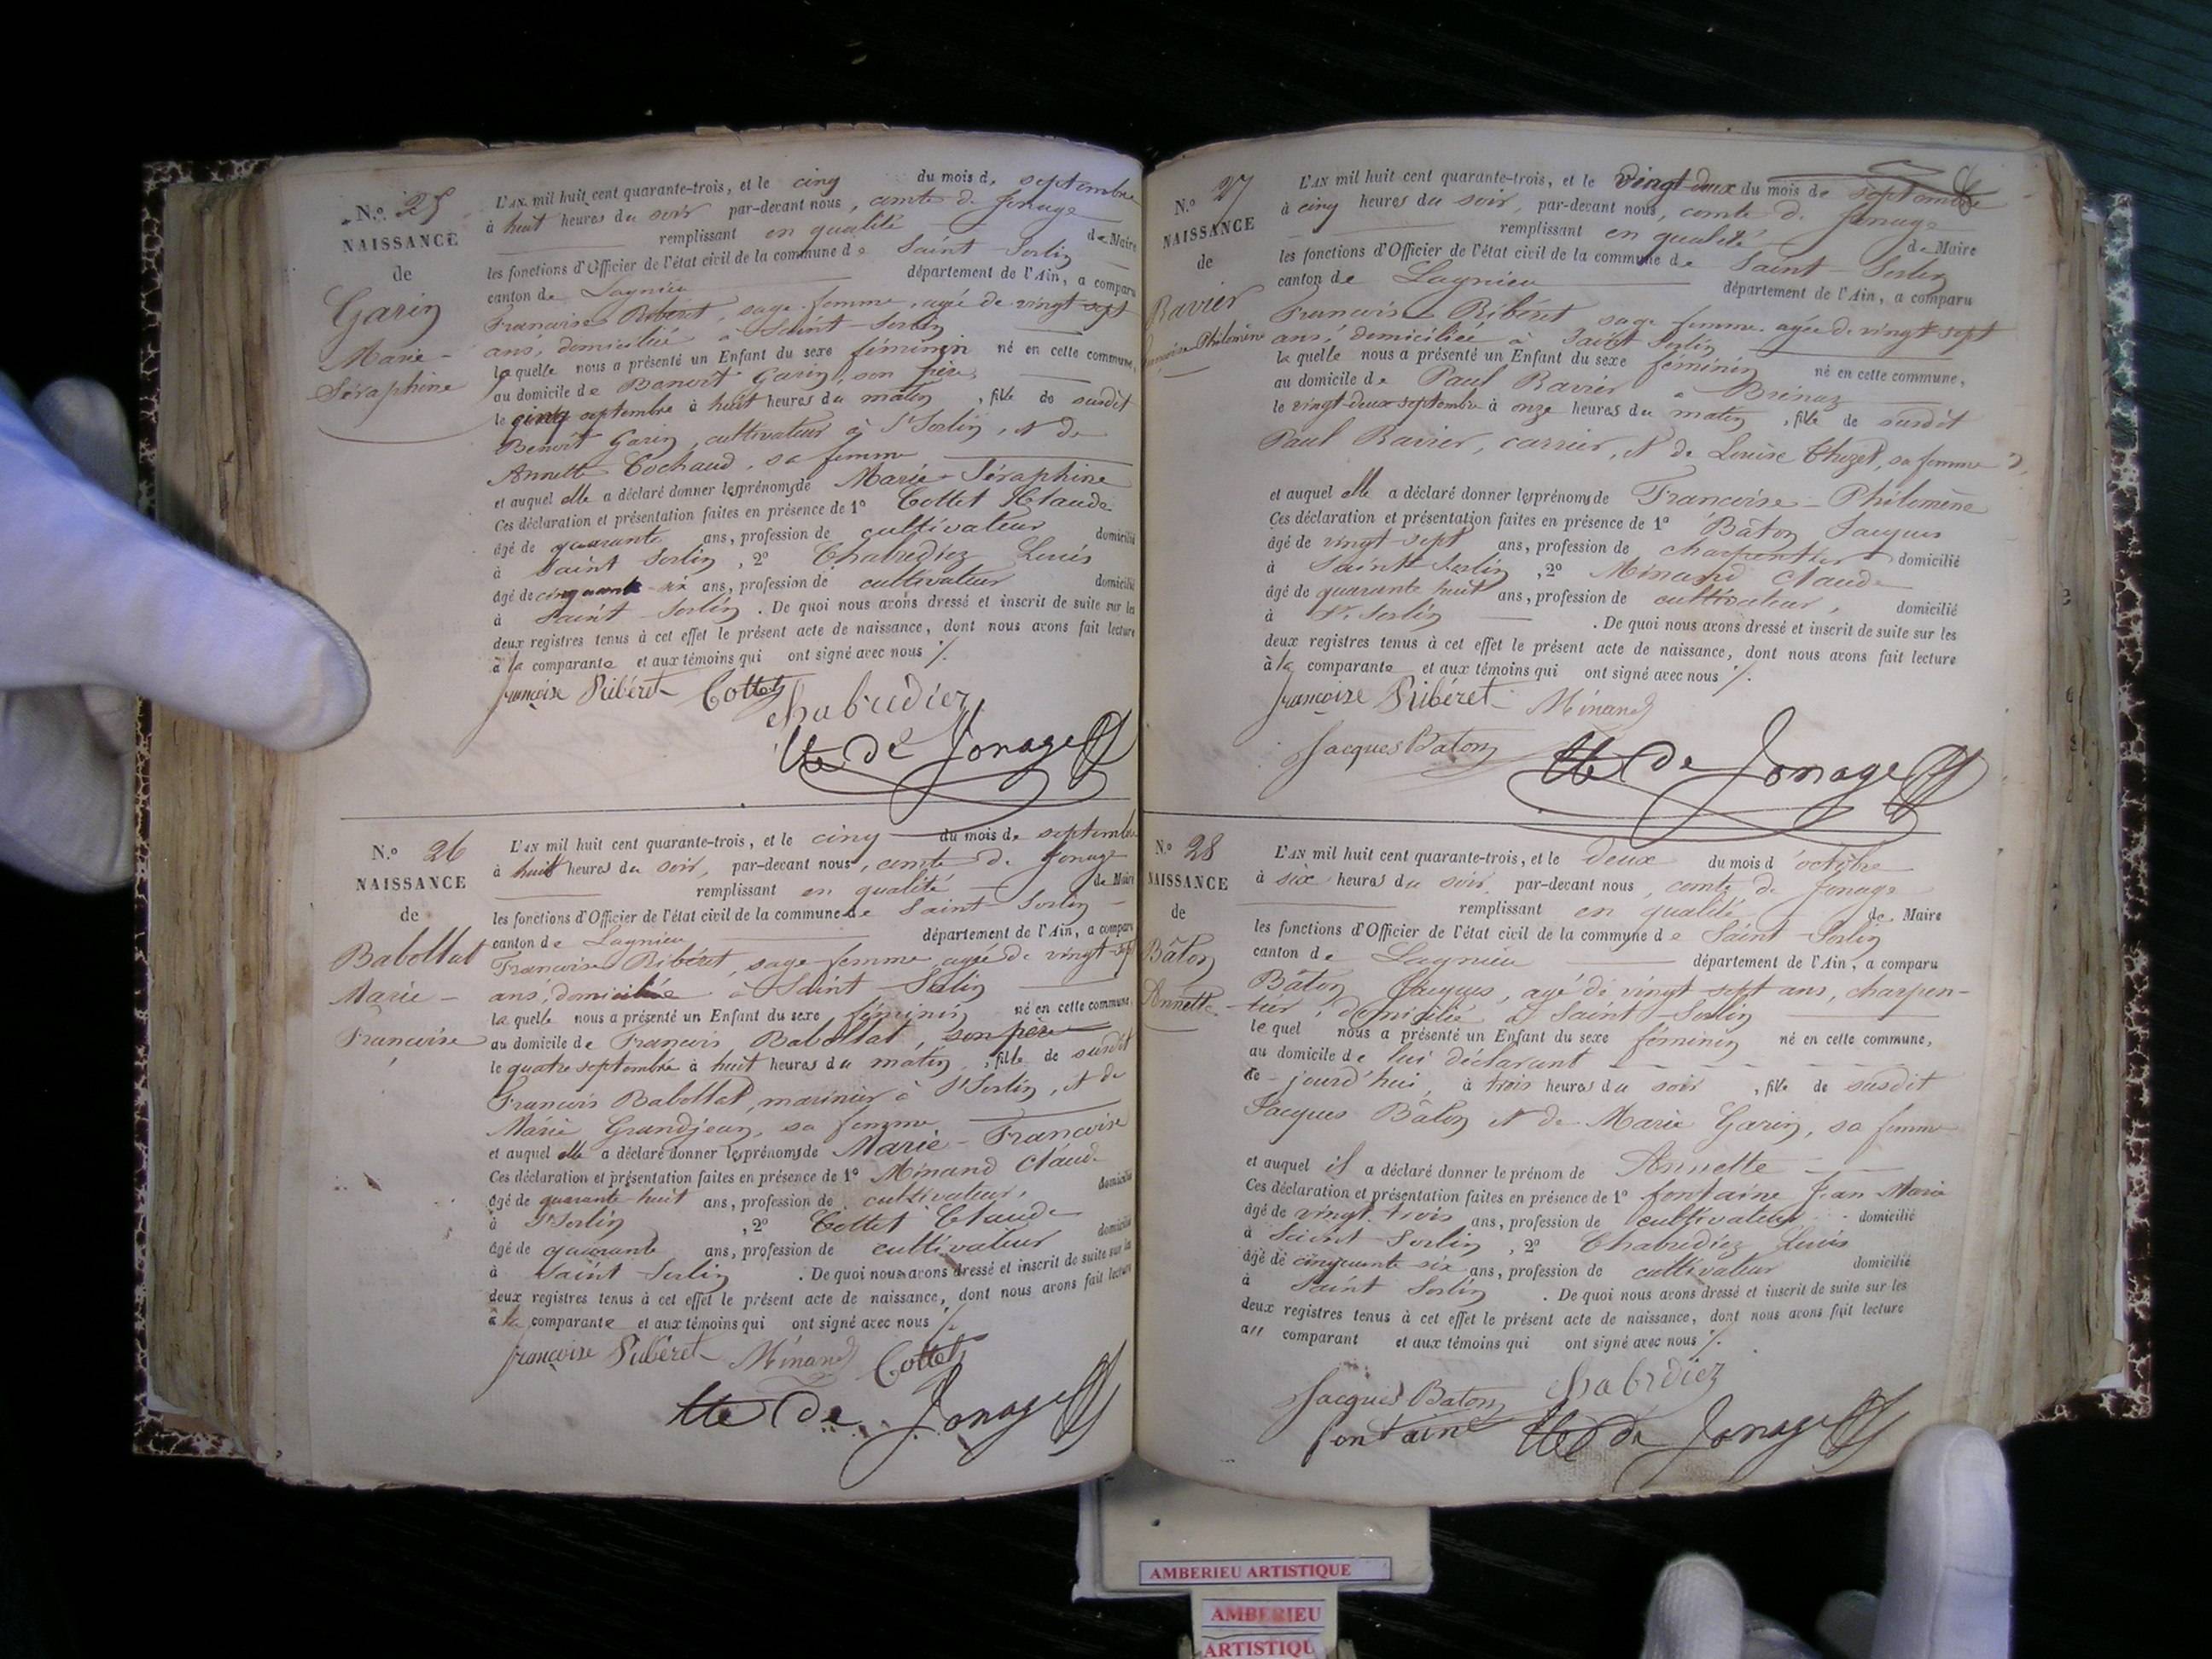 N.º 25
NAISSANCE
de
Garin
Marie-
Séraphine
L'AN mil huit cent quarante-trois, et le cinq du mois de septembre
à huit heures du soir par-devant nous, comte de Jonage
remplissant en qualité de Maire
les fonctions d'Officier de l'état civil de la commune de Saint-Sorlin
canton de Lagnieu département de l'Ain, a comparu
Francoise Ribéret, sage-femme, agée de vingt-sept
ans, domiciliée à Saint-Sorlin
laquelle nous a présenté un Enfant du sexe féminin né en cette commune,
au domicile de Benoît Garin, son père,
le cinq septembre à huit heures du matin, fille de susdit
Benoît Garin, cultivateur à St Sorlin, et de
Annette Cochaud, sa femme
et auquel elle a déclaré donner les prénoms de Marie-Séraphine
Ces déclaration et présentation faites en présence de 1º Cottet Claude
âgé de quarante ans, profession de cultivateur domicilié
à Saint Sorlin, 2º Chabrediez Louis
âgé de cinquante-six ans, profession de cultivateur domicilié
à Saint-Sorlin. De quoi nous avons dressé et inscrit de suite sur les
deux registres tenus à cet effet le présent acte de naissance, dont nous avons fait lecture
à la comparante et aux témoins qui ont signé avec nous ./.
francoise Ribéret Cottet
chabrediez
Cte De Jonage
N.º 26
NAISSANCE
de
Babollat
Marie-
Francoise
L'AN mil huit cent quarante-trois, et le cinq du mois de septembre
à huit heures du soir, par-devant nous, comte de Jonage
remplissant en qualité de Maire
les fonctions d'Officier de l'état civil de la commune de Saint-Sorlin
canton de Lagnieu département de l'Ain, a comparu
Francoise Ribéret, sage-femme, agée de vingt-sept
ans, domiciliée à Saint-Sorlin
laquelle nous a présenté un Enfant du sexe féminin né en cette commune,
au domicile de Francois Babollat, son père
le quatre septembre à huit heures du matin, fille de susdit
Francois Babollat, marinier à St Sorlin, et de
Marie Grandjean, sa femme
et auquel elle a déclaré donner les prénoms de Marie-Francoise
Ces déclaration et présentation faites en présence de 1º Minand Claude
âgé de quarante-huit ans, profession de cultivateur, domicilié
à St Sorlin, 2º Cottet Claude
âgé de quarante ans, profession de cultivateur domicilié
à Saint-Sorlin. De quoi nous avons dressé et inscrit de suite sur les
deux registres tenus à cet effet le présent acte de naissance, dont nous avons fait lecture
à la comparante et aux témoins qui ont signé avec nous ./.
francoise Ribéret Minand Cottet
Cte De Jonage
N.º 27
NAISSANCE
de
Ravier
Francoise Philomène
L'AN mil huit cent quarante-trois, et le vingt-deux du mois de septembre
à cinq heures du soir, par-devant nous, comte de Jonage
remplissant en qualité de Maire
les fonctions d'Officier de l'état civil de la commune de Saint-Sorlin
canton de Lagnieu département de l'Ain, a comparu
Francoise Ribéret sage femme agée de vingt-sept
ans, domiciliée à Saint Sorlin
laquelle nous a présenté un Enfant du sexe féminin né en cette commune,
au domicile de Paul Ravier à Brénaz
le vingt-deux septembre à onze heures du matin, fille de susdit
Paul Ravier, carrier, et de Louise Thuzet, sa femme
et auquel elle a déclaré donner les prénoms de Francoise-Philomène
Ces déclaration et présentation faites en présence de 1º Bâton Jacques
âgé de vingt-sept ans, profession de charpentier domicilié
à Saint-Sorlin, 2º Minand Claude
âgé de quarante huit ans, profession de cultivateur, domicilié
à St Sorlin. De quoi nous avons dressé et inscrit de suite sur les
deux registres tenus à cet effet le présent acte de naissance, dont nous avons fait lecture
à la comparante et aux témoins qui ont signé avec nous ./.
francoise Ribéret Minand
Jacques Baton Cte De Jonage
N.º 28
NAISSANCE
de
Bâton
Annette
L'AN mil huit cent quarante-trois, et le deux du mois d'octobre
à six heures du soir, par-devant nous, comte de Jonage
remplissant en qualité de Maire
les fonctions d'Officier de l'état civil de la commune de Saint-Sorlin
canton de Lagnieu département de l'Ain, a comparu
Bâton Jacques, agé de vingt sept ans, charpen-
tier, domicilié à Saint-Sorlin
lequel nous a présenté un Enfant du sexe féminin né en cette commune,
au domicile de lui déclarant
ce-jourd'hui, à trois heures du soir, fille de susdit
Jacques Bâton et de Marie Garin, sa femme
et auquel il a déclaré donner le prénom de Annette
Ces déclaration et présentation faites en présence de 1º fontaine Jean Marie
âgé de vingt-trois ans, profession de cultivateur domicilié
à Saint-Sorlin, 2º Chabrediez Louis
âgé de cinquante six ans, profession de cultivateur domicilié
à Saint Sorlin. De quoi nous avons dressé et inscrit de suite sur les
deux registres tenus à cet effet le présent acte de naissance, dont nous avons fait lecture
au comparant et aux témoins qui ont signé avec nous ./.
Jacques Baton chabrdiez
fontaine Cte De Jonage
AMBERIEU ARTISTIQUE
AMBERIEU
ARTISTIQU